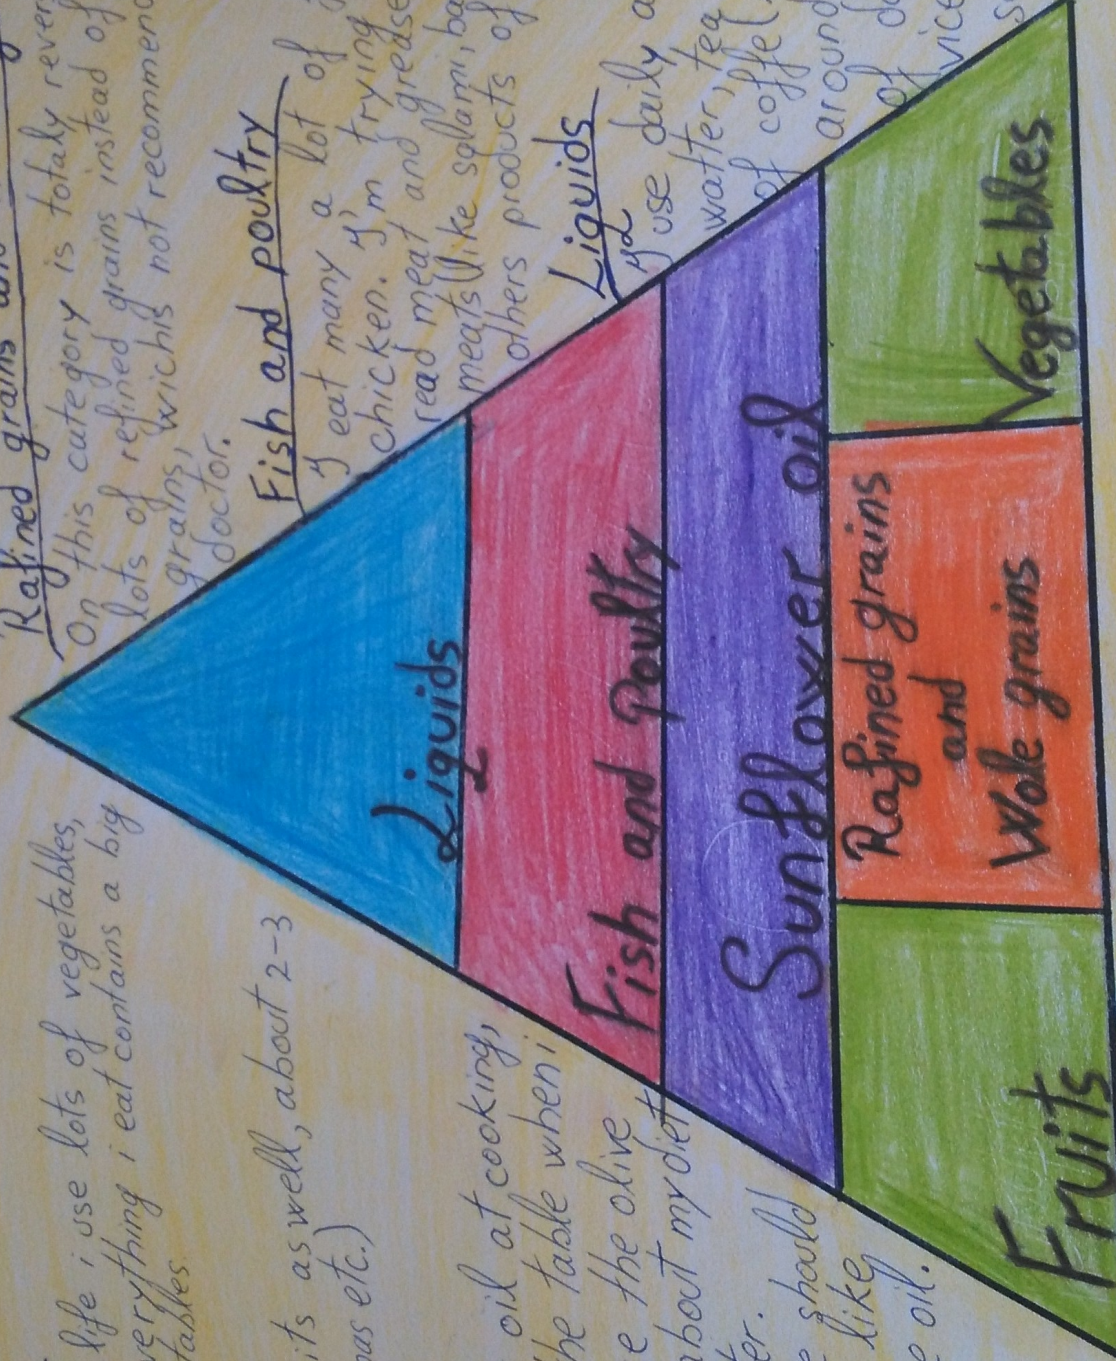 life i use lots of vegetables,
verything i eat contains a big
tables
its as well, about 2-3
nas etc.)
oil at cooking,
he table when i
e the olive
about my diet
er.
should
like
e oil.
Liquids
Fish and Poultry
Sunflower oil
Fruits
Rafined grains
and
Wole grains
Vegetables
Rafined grains and
On this category is totaly rever
lots of refined grains instead of
grains, wichis not recommend
doctor.
Fish and poultry
y eat many a lot of
chicken. y'm trying
read meat and grease
meats (like salami, ba
others products of
Liquids
y use daily a
watter, tea
of coffe (
around
of
vice
s